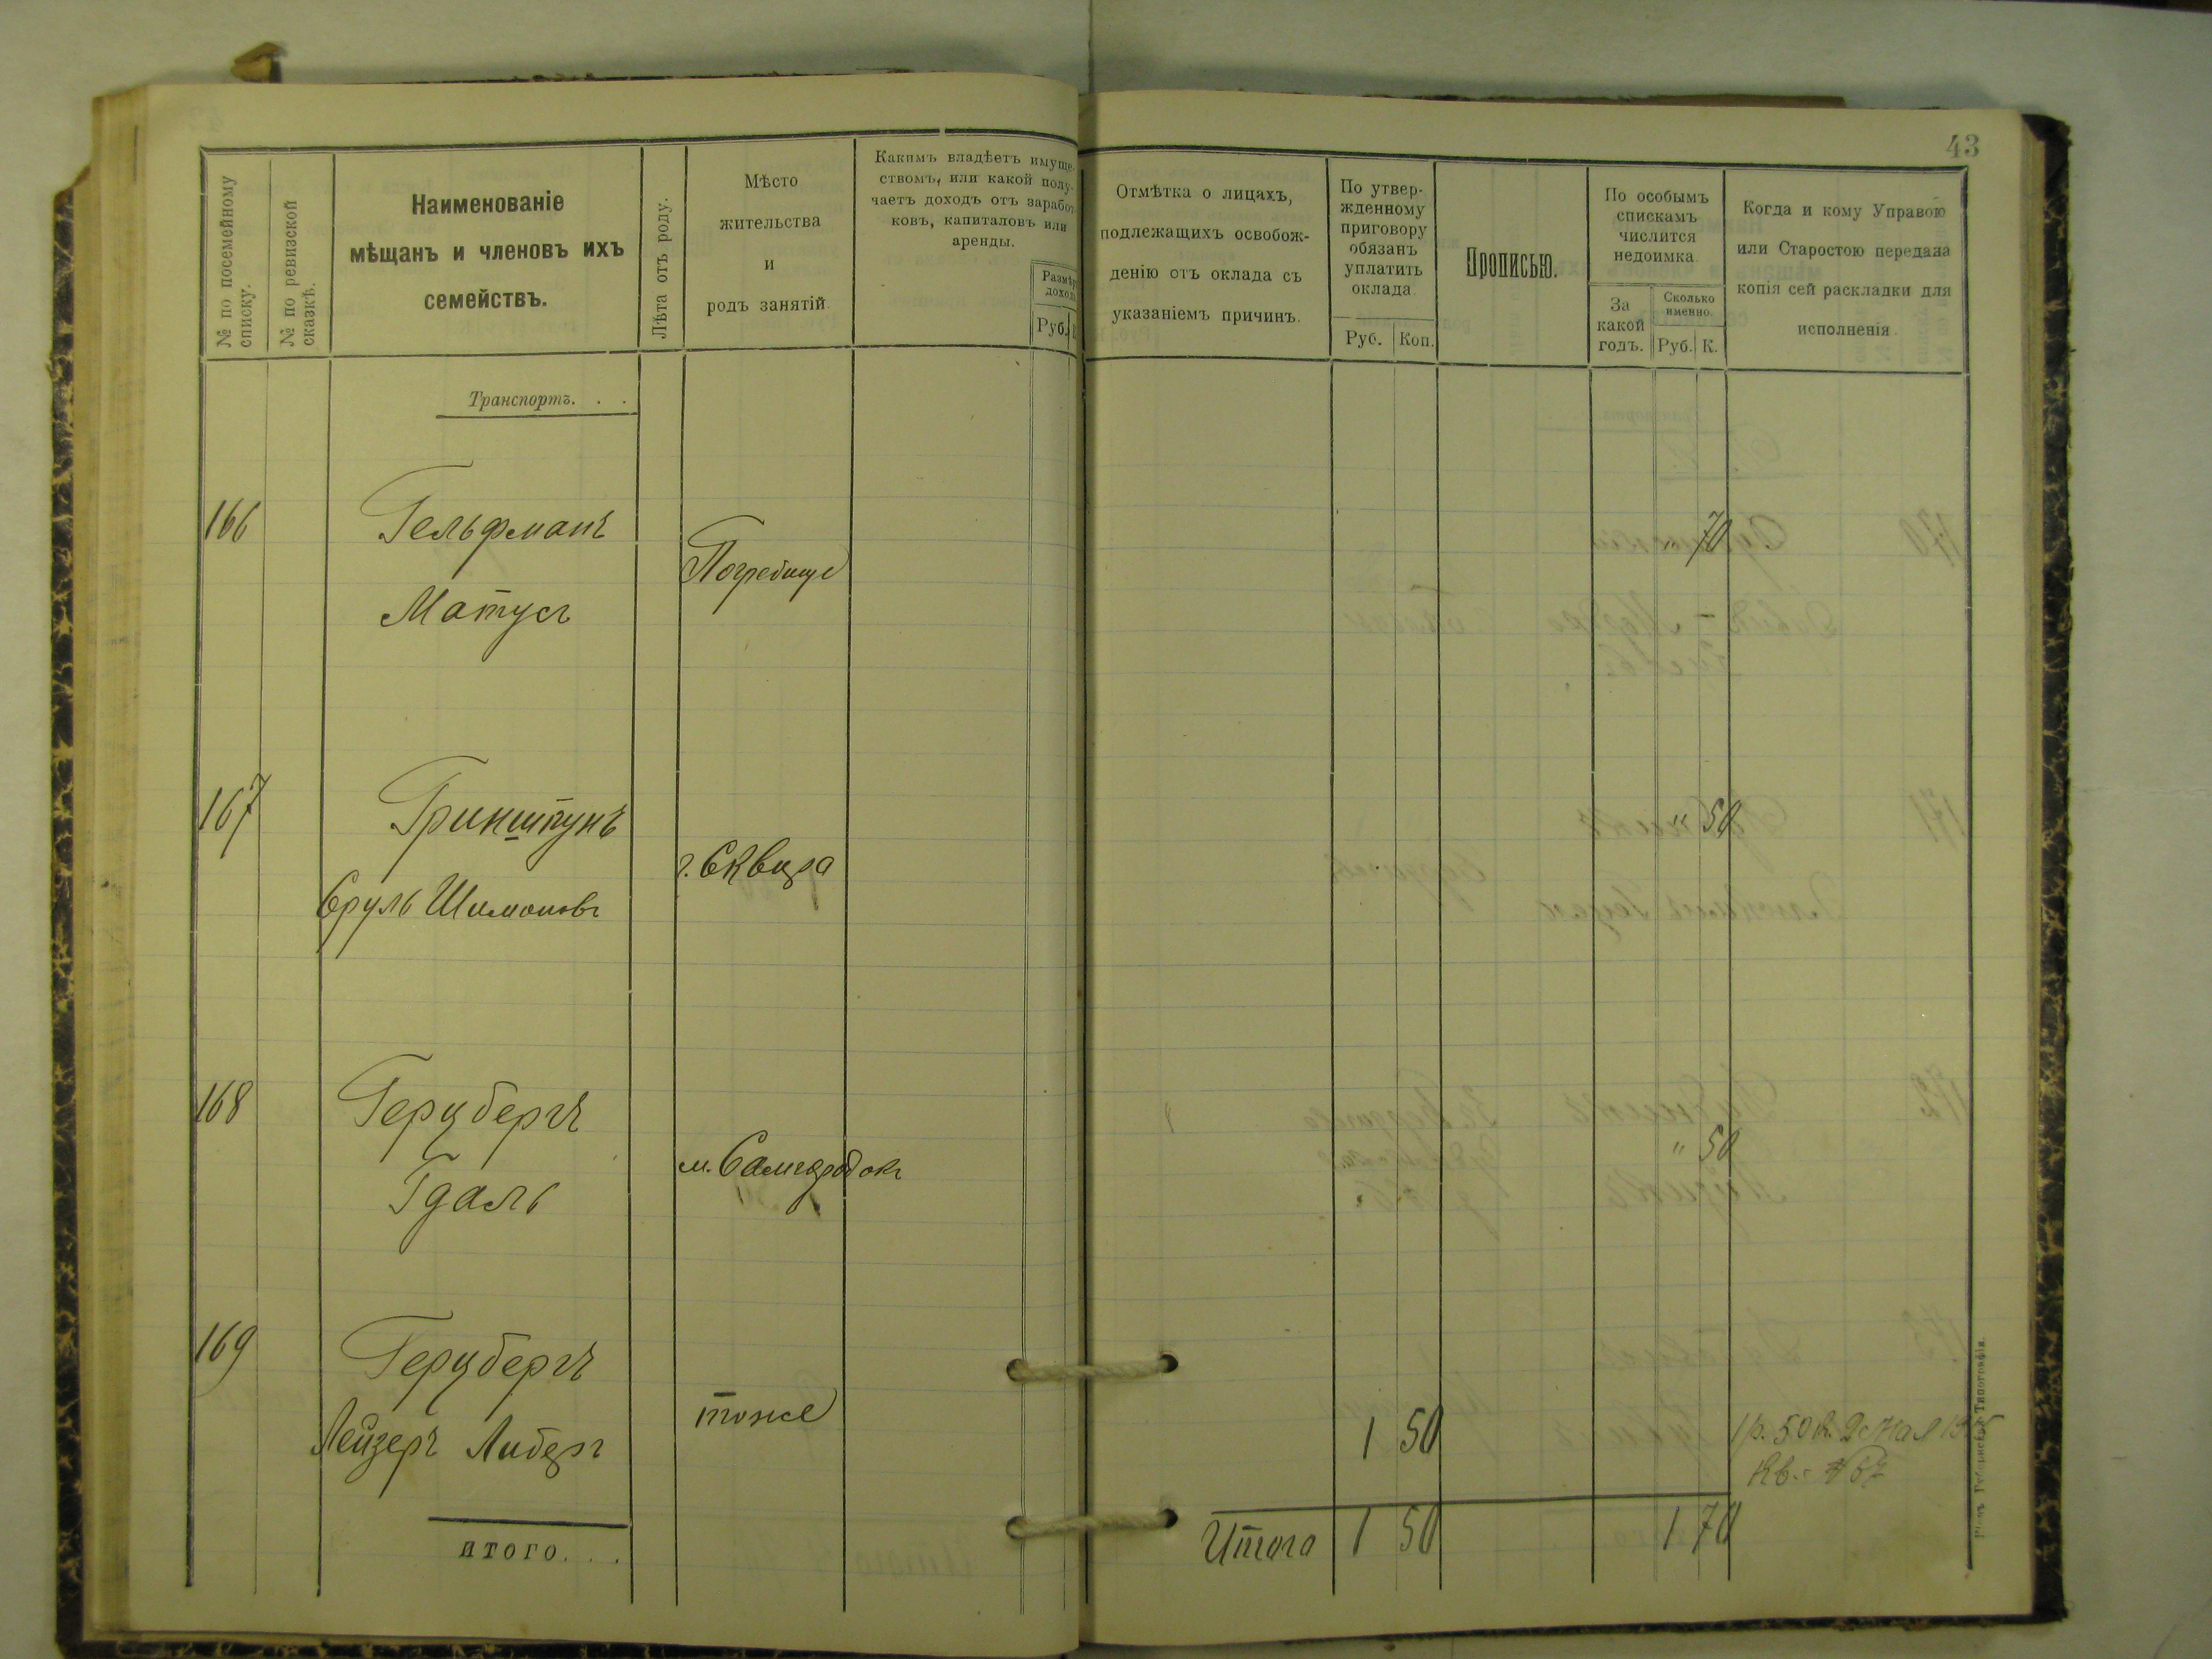 43
№ по посемейному списку.
№ по ревизской сказкѣ.
Наименованіе
мѣщанъ и членовъ ихъ
семействъ.
Лѣта отъ роду.
Мѣсто
жительства
и
родъ занятій.
Какимъ владѣетъ имуще-
ствомъ, или какой полу-
чаетъ доходъ отъ заработ-
ковъ, капиталовъ или
аренды.
Размѣръ
дохода
Руб. К
Отмѣтка о лицахъ,
подлежащихъ освобож-
денію отъ оклада съ
указаніемъ причинъ.
По утвер-
жденному
приговору
обязанъ
уплатить
оклада.
Руб. Коп.
Прописью.
По особымъ
спискамъ
числится
недоимка
За
какой
годъ.
Сколько
именно.
Руб. К.
Когда и кому Управою
или Старостою передана
копія сей раскладки для
исполненія.
Транспортъ. . .
166 Гельфманъ 70
Погребище
Матусъ
167 Гринштунъ " 50
г. Сквира
Сруль Шимоновъ
168 Герцбергъ " 50
м. Самгородокъ
Гдаль
169 Герцбергъ
тоже 1 50 1 р. 50 к.
Лейзеръ Либеръ
Кв.
итого. . . Итого 1 50 1 70
Типографія.